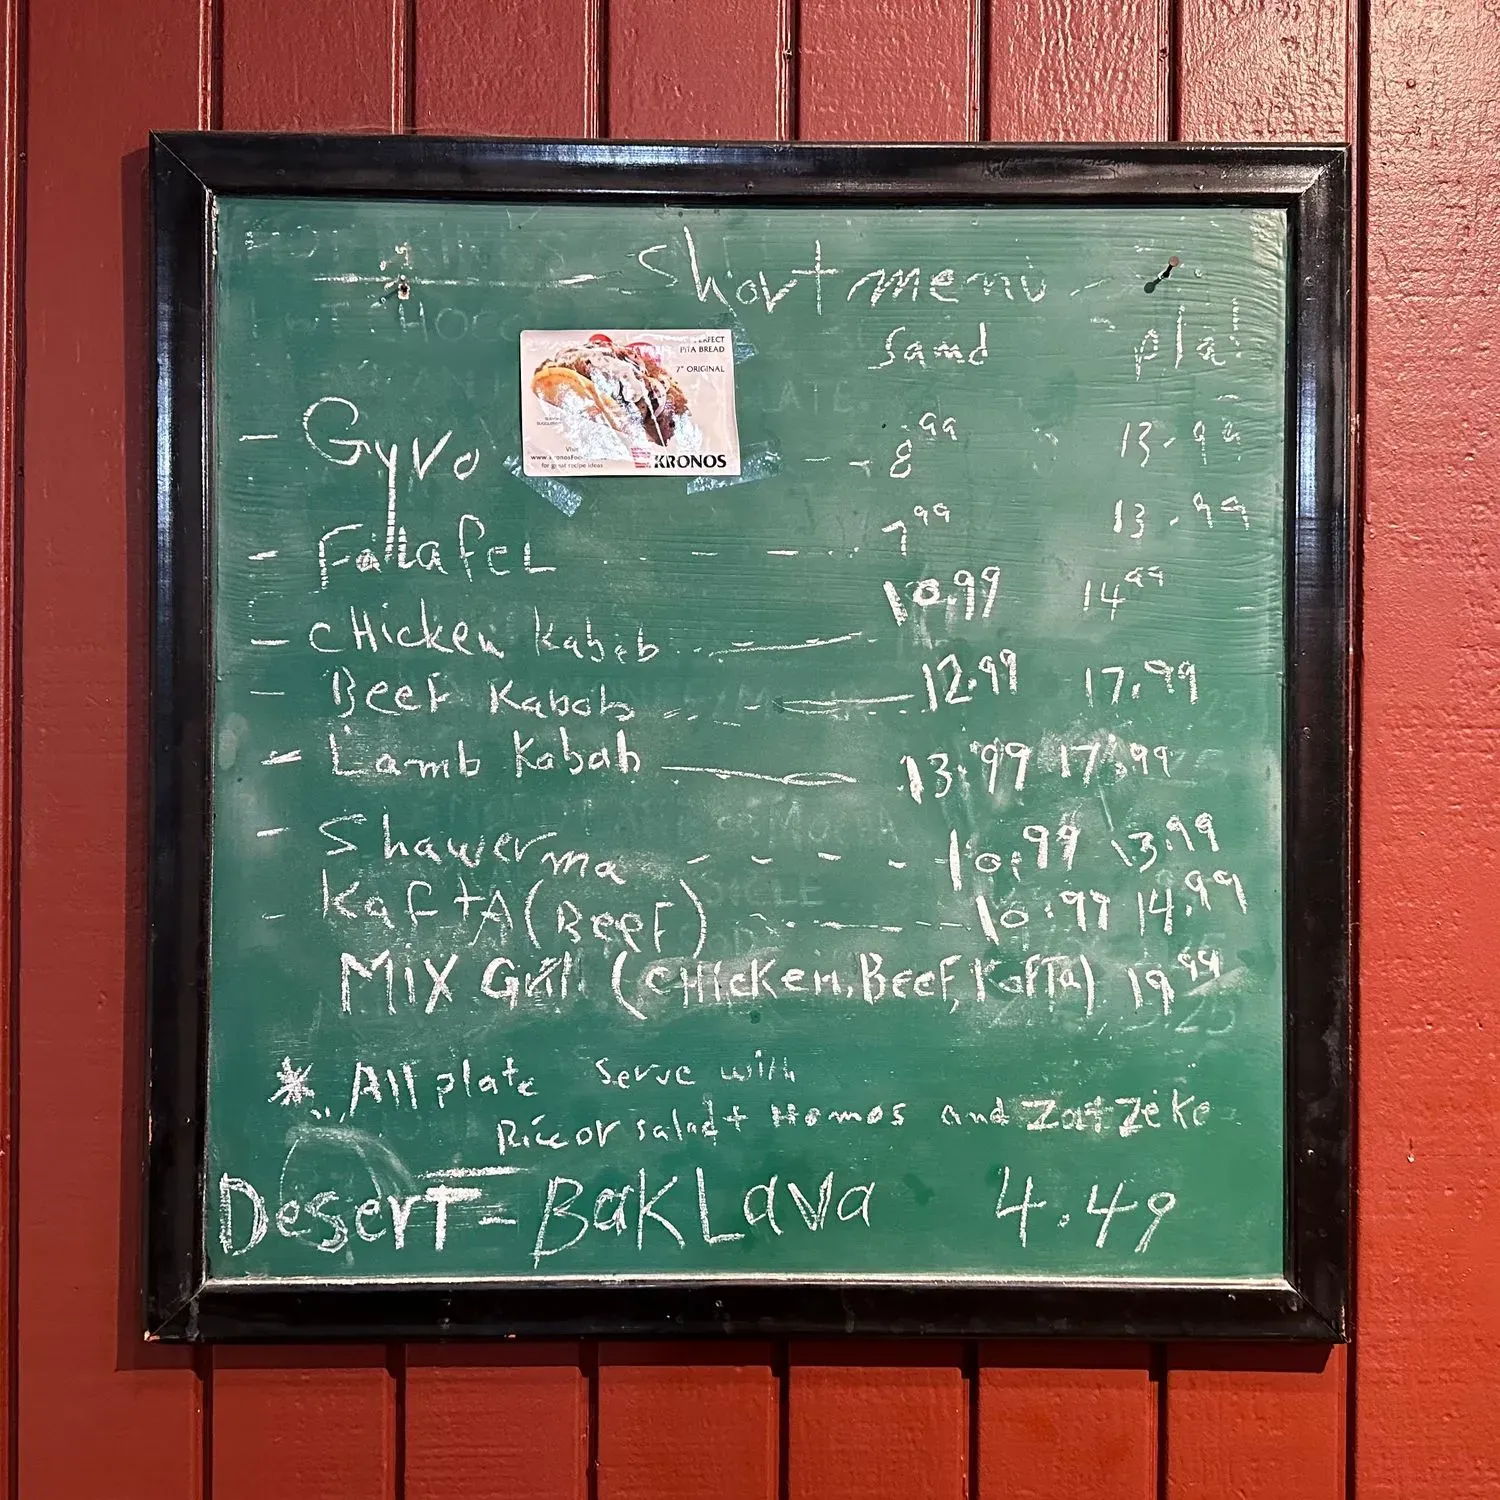 - Short menu -
Sand plat
PERFECT
PITA BREAD
7" ORIGINAL
Visit
www.kronosFoo
for great recipe ideas
KRONOS
- Gyro - - 8 99 13.99
- Fallafel - - - 7 99 13.99
- CHicken Kabab 10.99 14 99
- Beef Kabab 12.99 17.99
- Lamb Kabab 13.99 17.99
- Shawerma - - - - 10.99 13.99
- KafTA (BeeF) - - - - 10.99 14.99
MIX Grill (CHicken, BeeF, KafTa) 19 99
* All plate Serve with
Rice or salad + Homos and ZatZeke
DeserT - BakLava 4.49